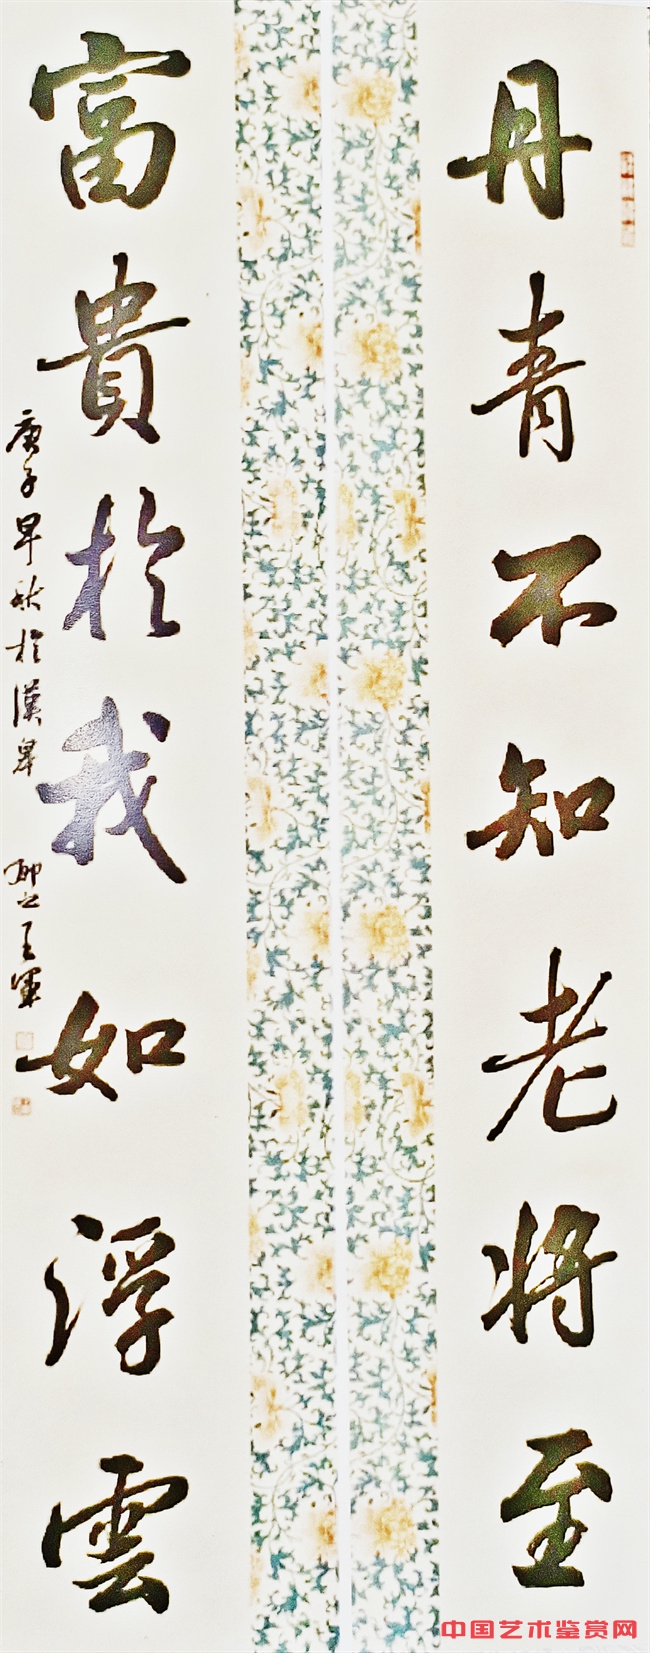 丹青不知老将至
富貴於我如浮雲
庚子早秋於漢皋
王軍
中国艺术鉴赏网